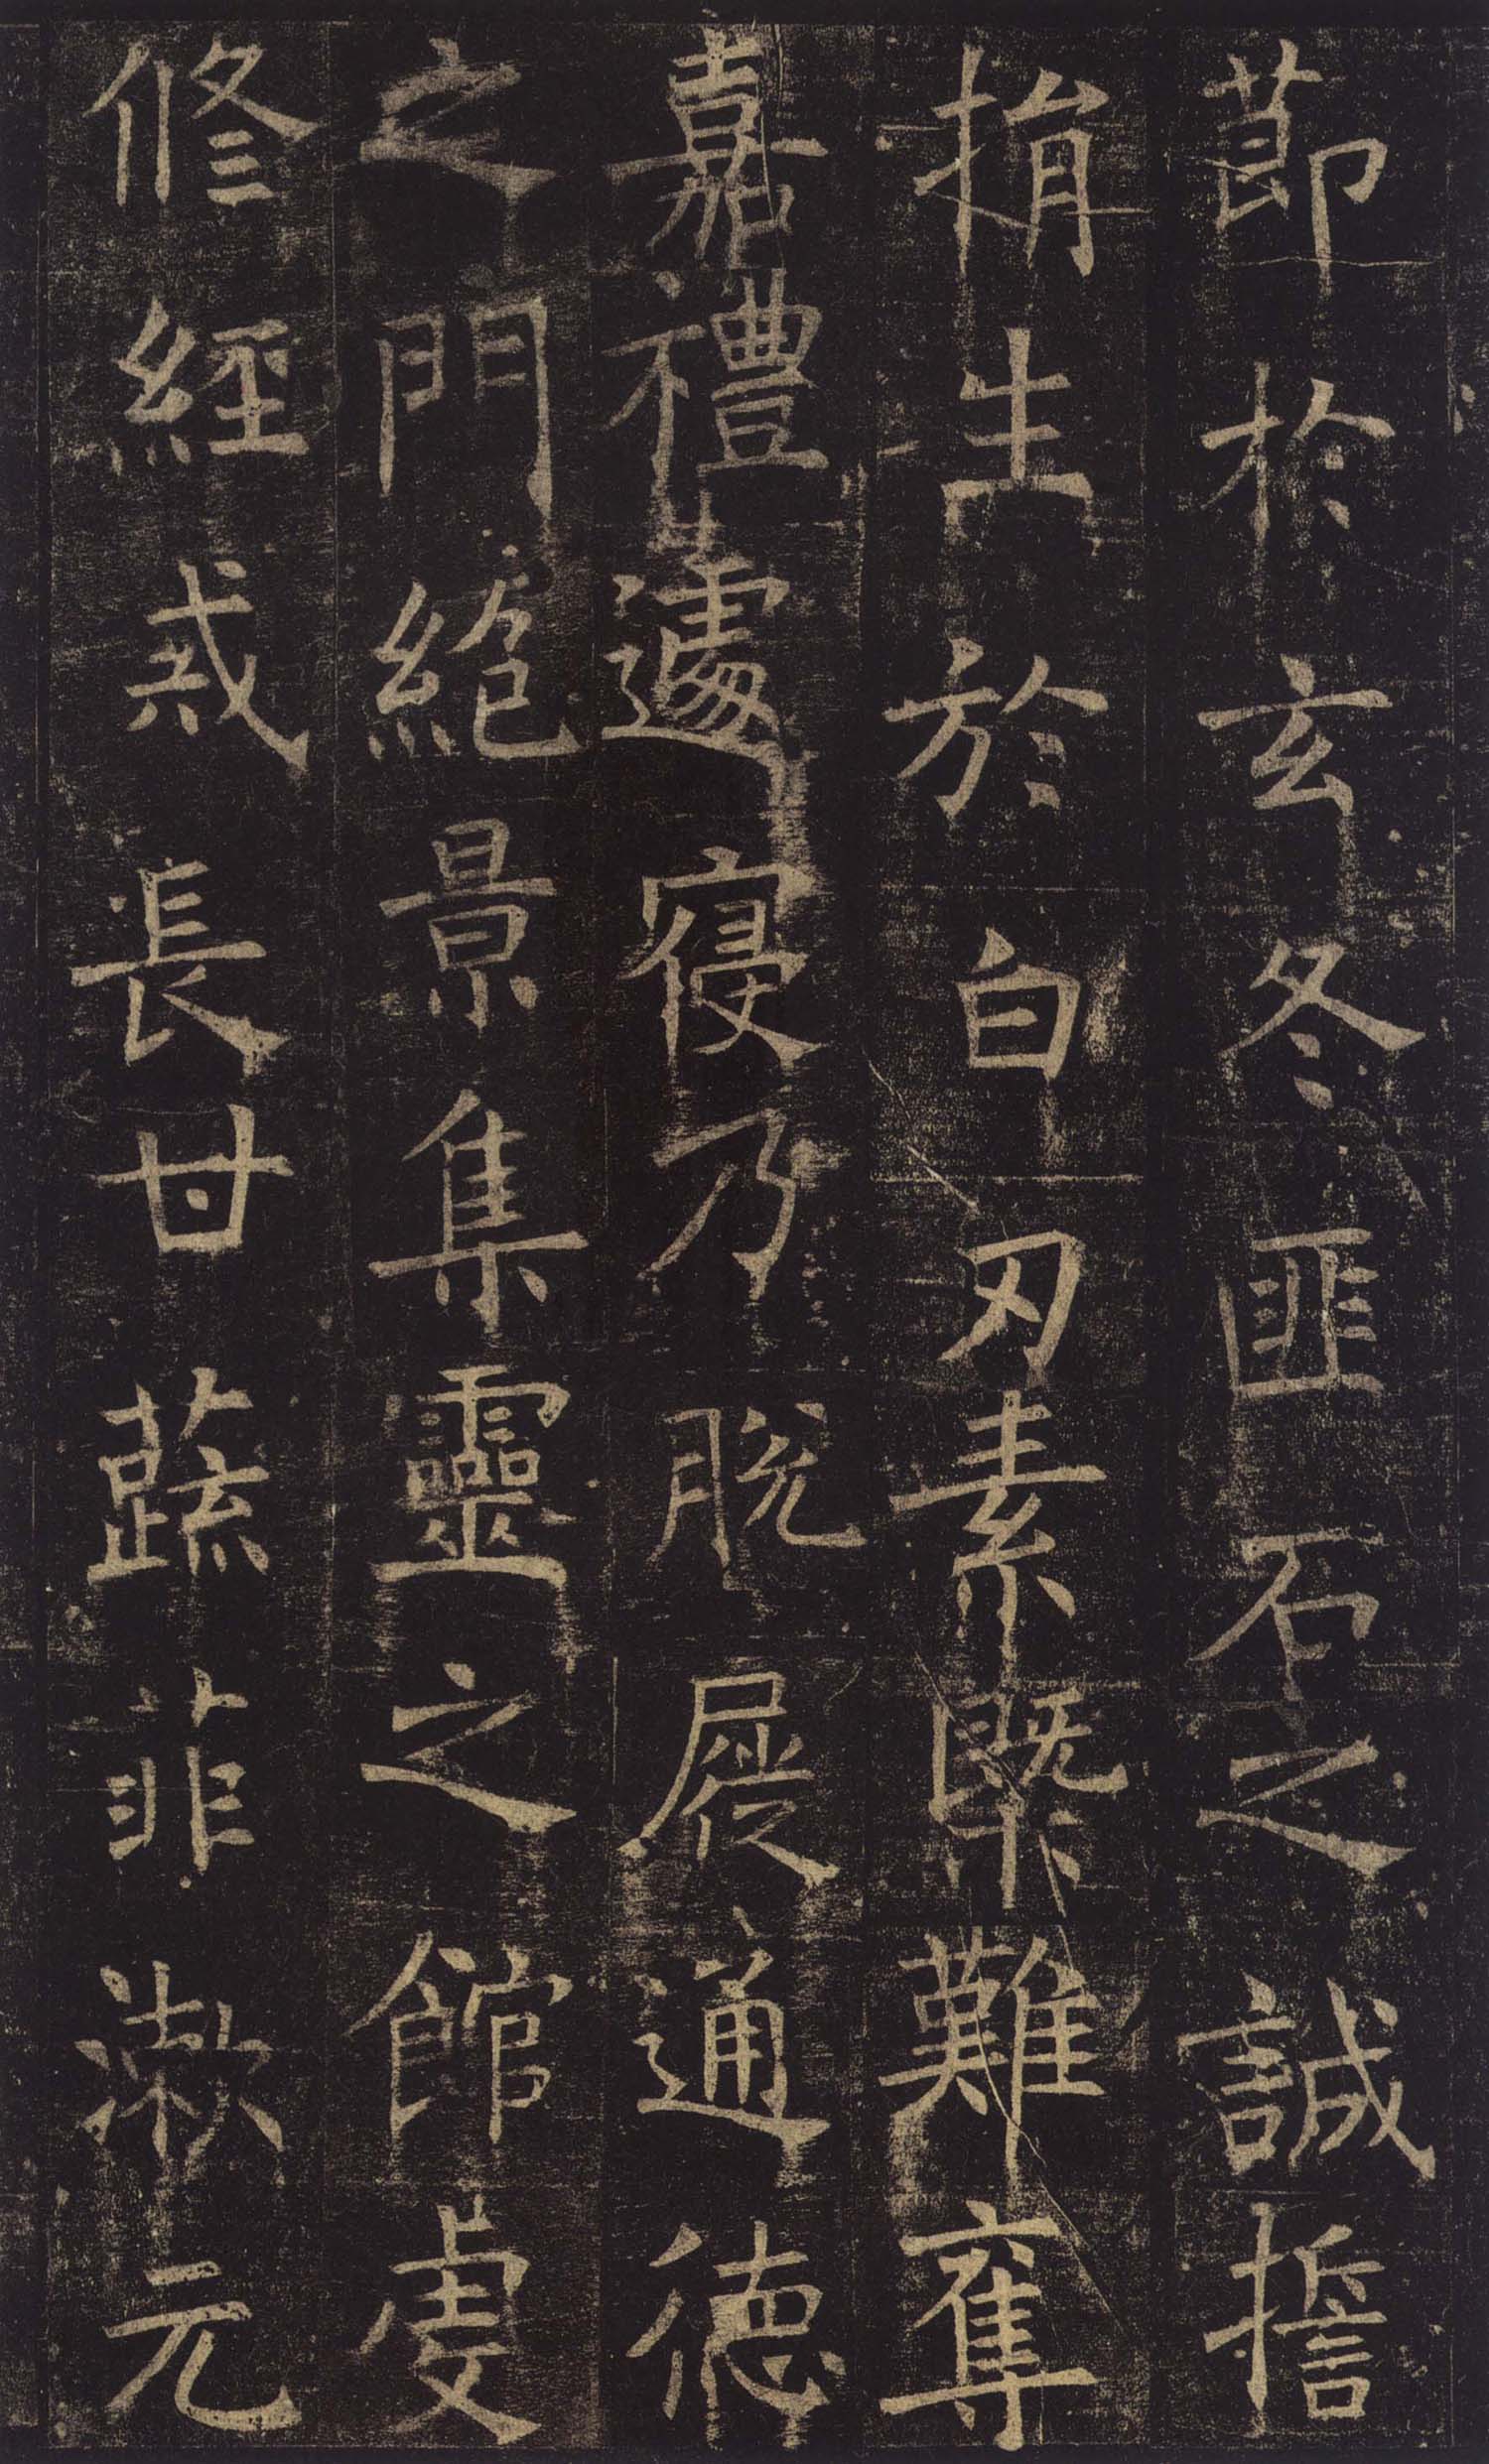 節於玄冬匪石之誠擔
捐生於白刃素槩難奪
嘉禮遽寑乃脱屣通德
之門絶景集靈之館虔
修經戒長甘蔬菲漱元